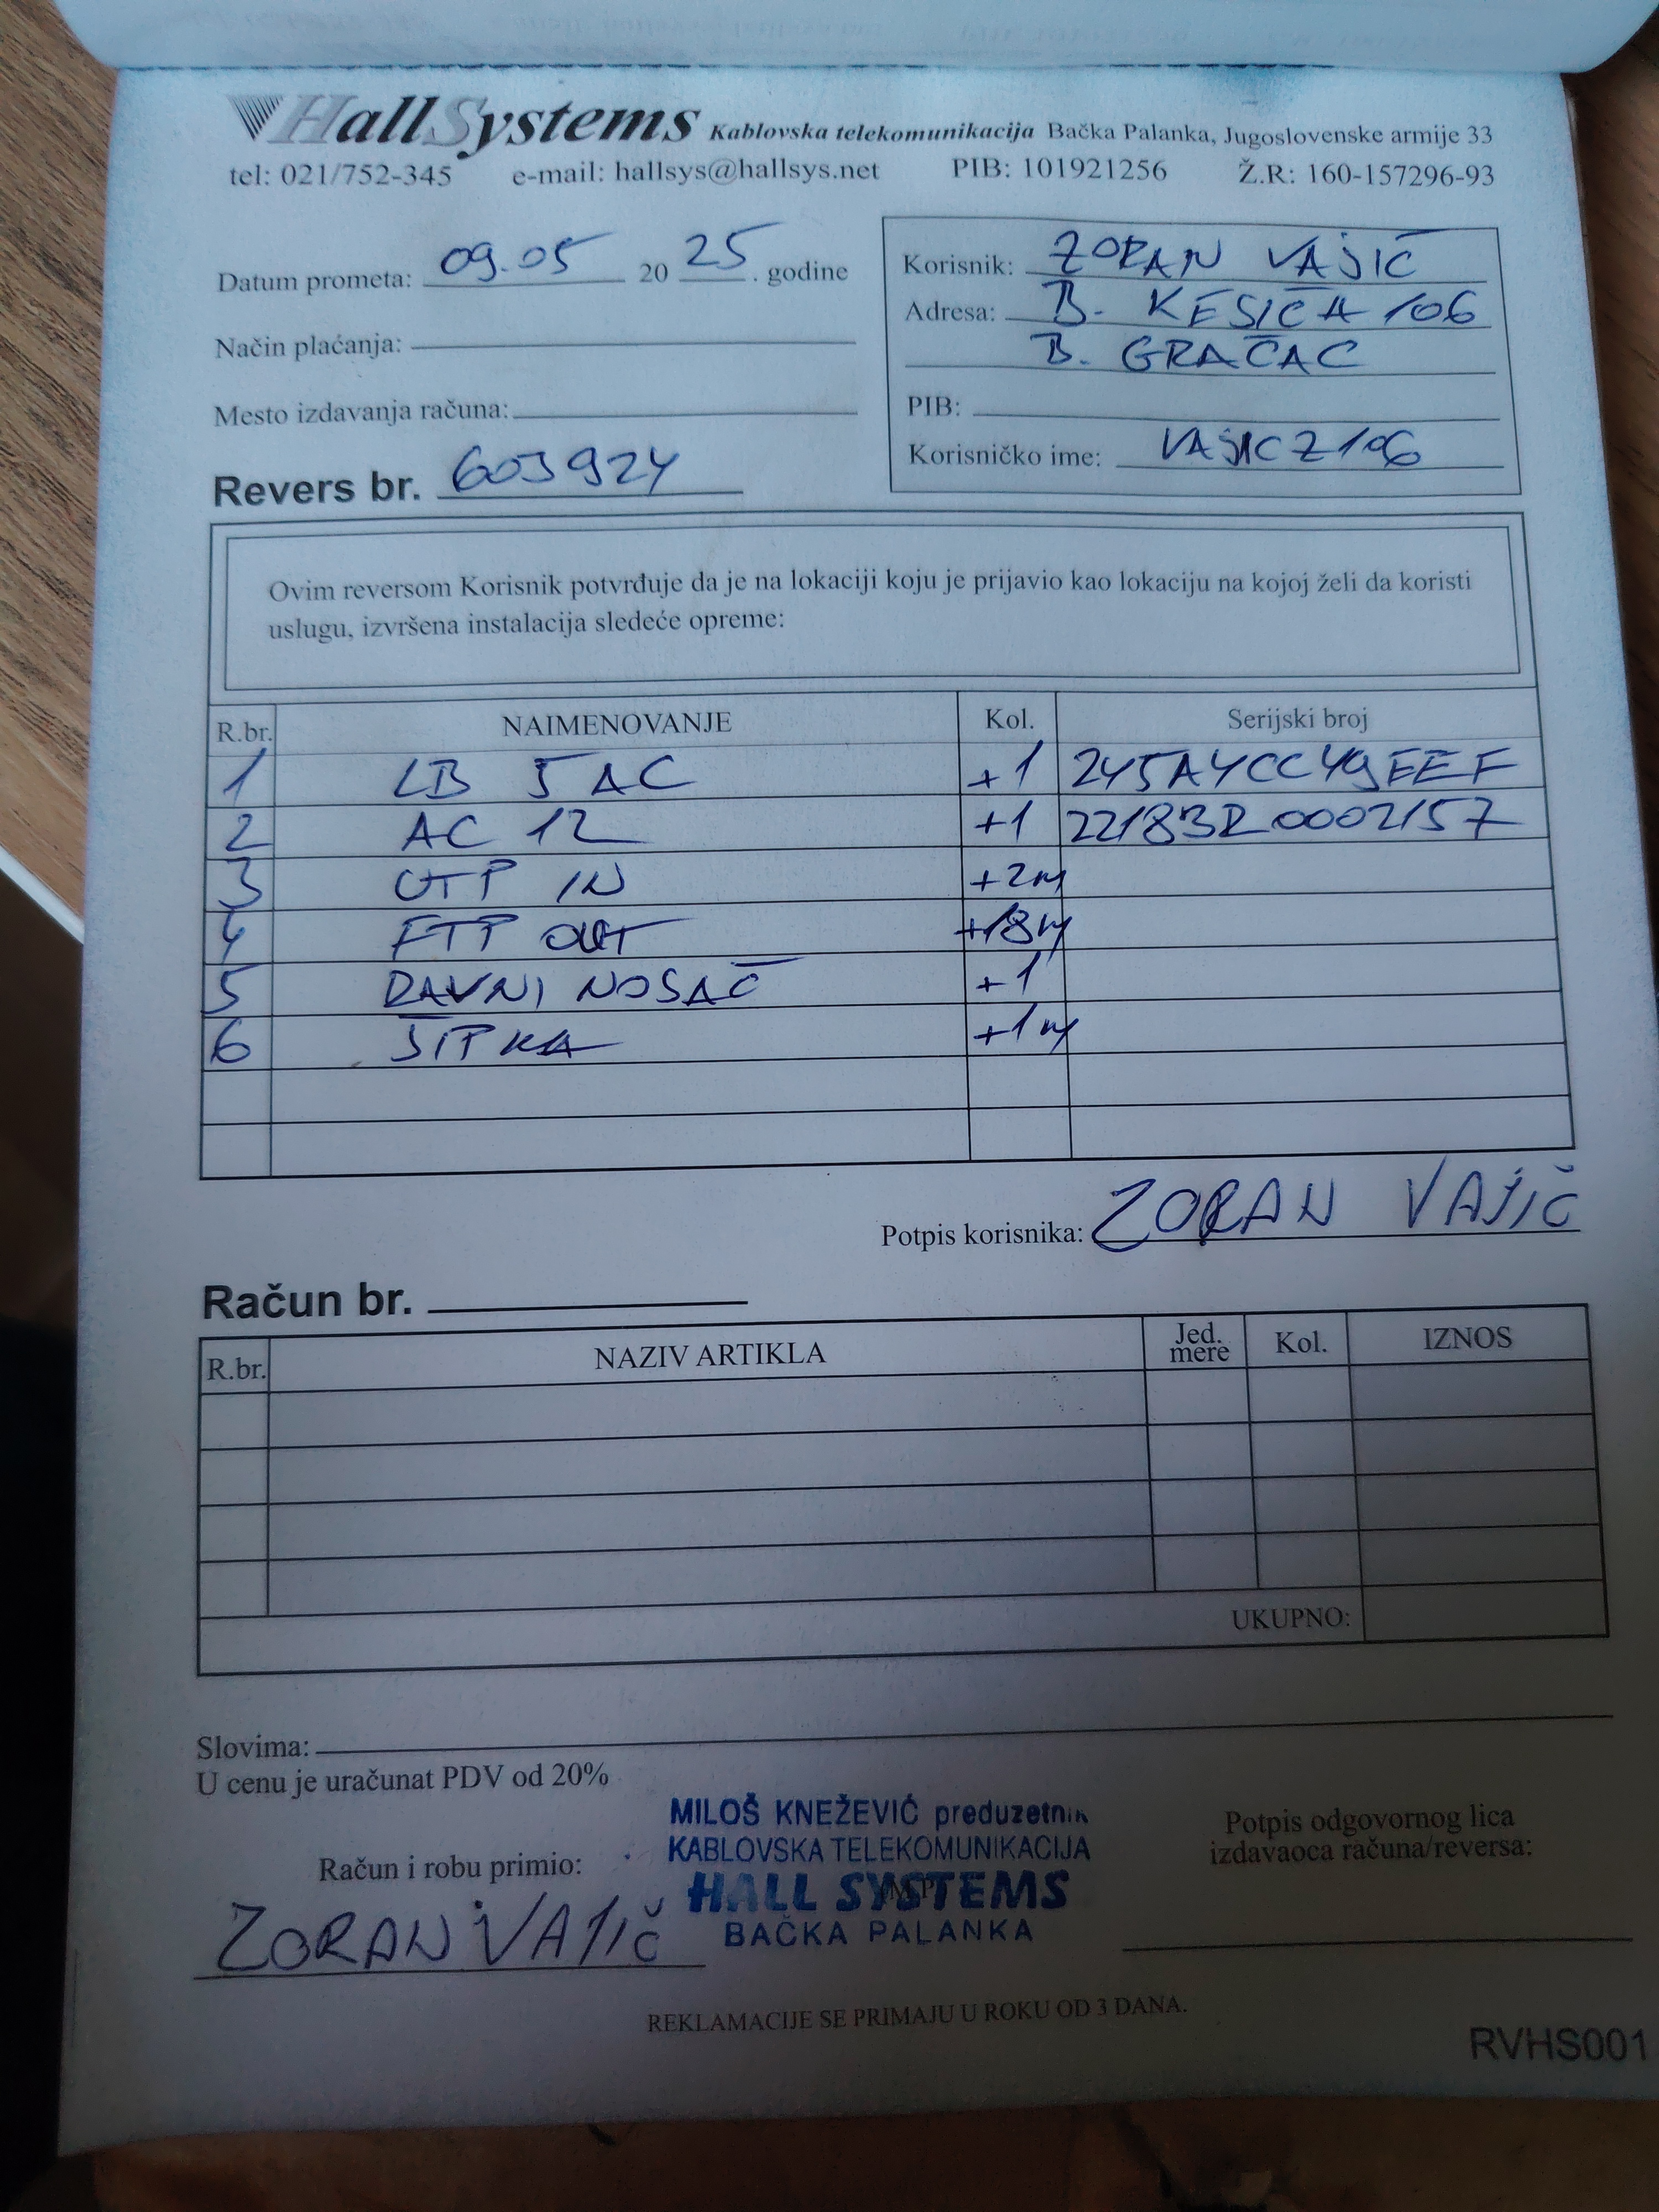 HallSystems Kablovska telekomunikacija Bačka Palanka, Jugoslovenske armije 33
tel: 021/752-345 e-mail: hallsys@hallsys.net PIB: 101921256 Ž.R: 160-157296-93
Datum prometa: 09.05 20 25. godine
Način plaćanja:
Mesto izdavanja računa:
Revers br. 603924
Korisnik: ZORAN VAJIĆ
Adresa: B. KESIĆA 106
B. GRAČAC
PIB:
Korisničko ime: VAJICZ106
Ovim reversom Korisnik potvrđuje da je na lokaciji koju je prijavio kao lokaciju na kojoj želi da koristi
uslugu, izvršena instalacija sledeće opreme:
R.br. NAIMENOVANJE Kol. Serijski broj
1 LB 5 AC +1 245A4CC49EEF
2 AC 12 +1 22183R0002157
3 UTP IN +2m
4 FTP OUT +18m
5 RAVNI NOSAČ +1
6 ŠIPKA +1m
Potpis korisnika: ZORAN VAJIĆ
Račun br.
R.br. NAZIV ARTIKLA Jed. mere Kol. IZNOS
UKUPNO:
Slovima:
U cenu je uračunat PDV od 20%
Račun i robu primio:
ZORAN VAJIČ
MILOŠ KNEŽEVIĆ preduzetnik
KABLOVSKA TELEKOMUNIKACIJA
HALL SYSTEMS
BAČKA PALANKA
Potpis odgovornog lica
izdavaoca računa/reversa:
REKLAMACIJE SE PRIMAJU U ROKU OD 3 DANA.
RVHS001